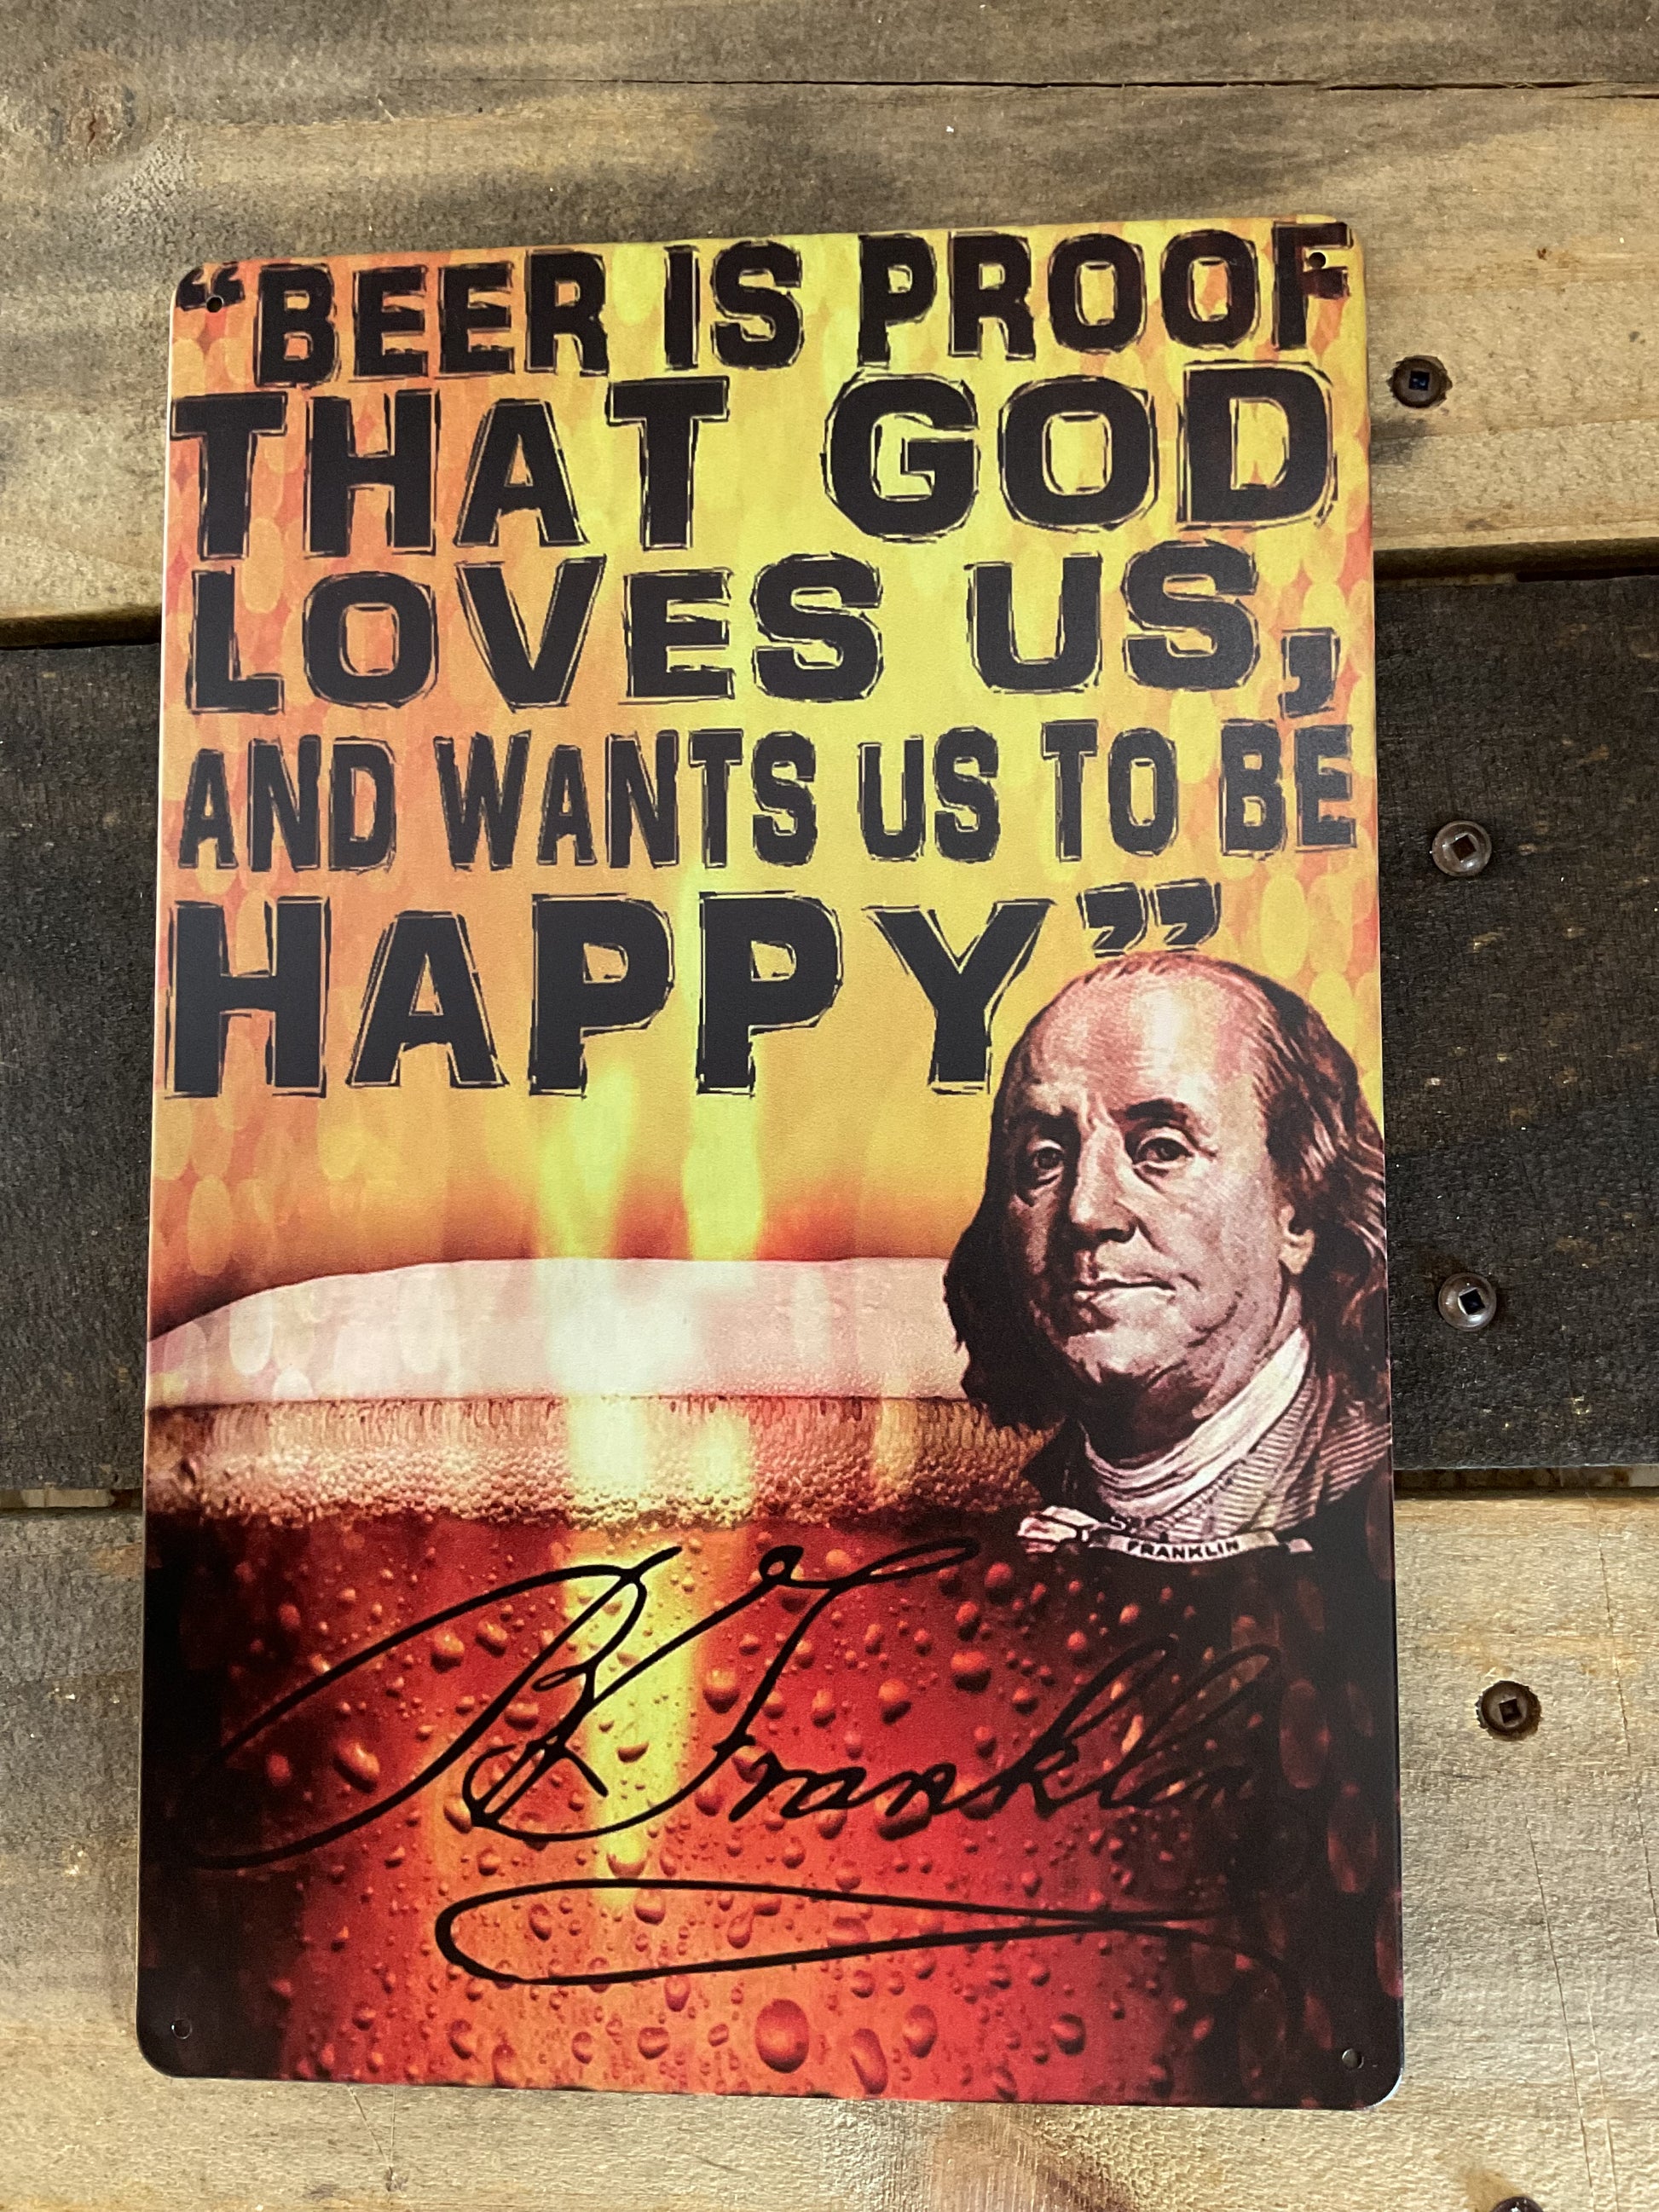 “BEER IS PROOF
THAT GOD
LOVES US,
AND WANTS US TO BE
HAPPY”
FRANKLIN
B Franklin